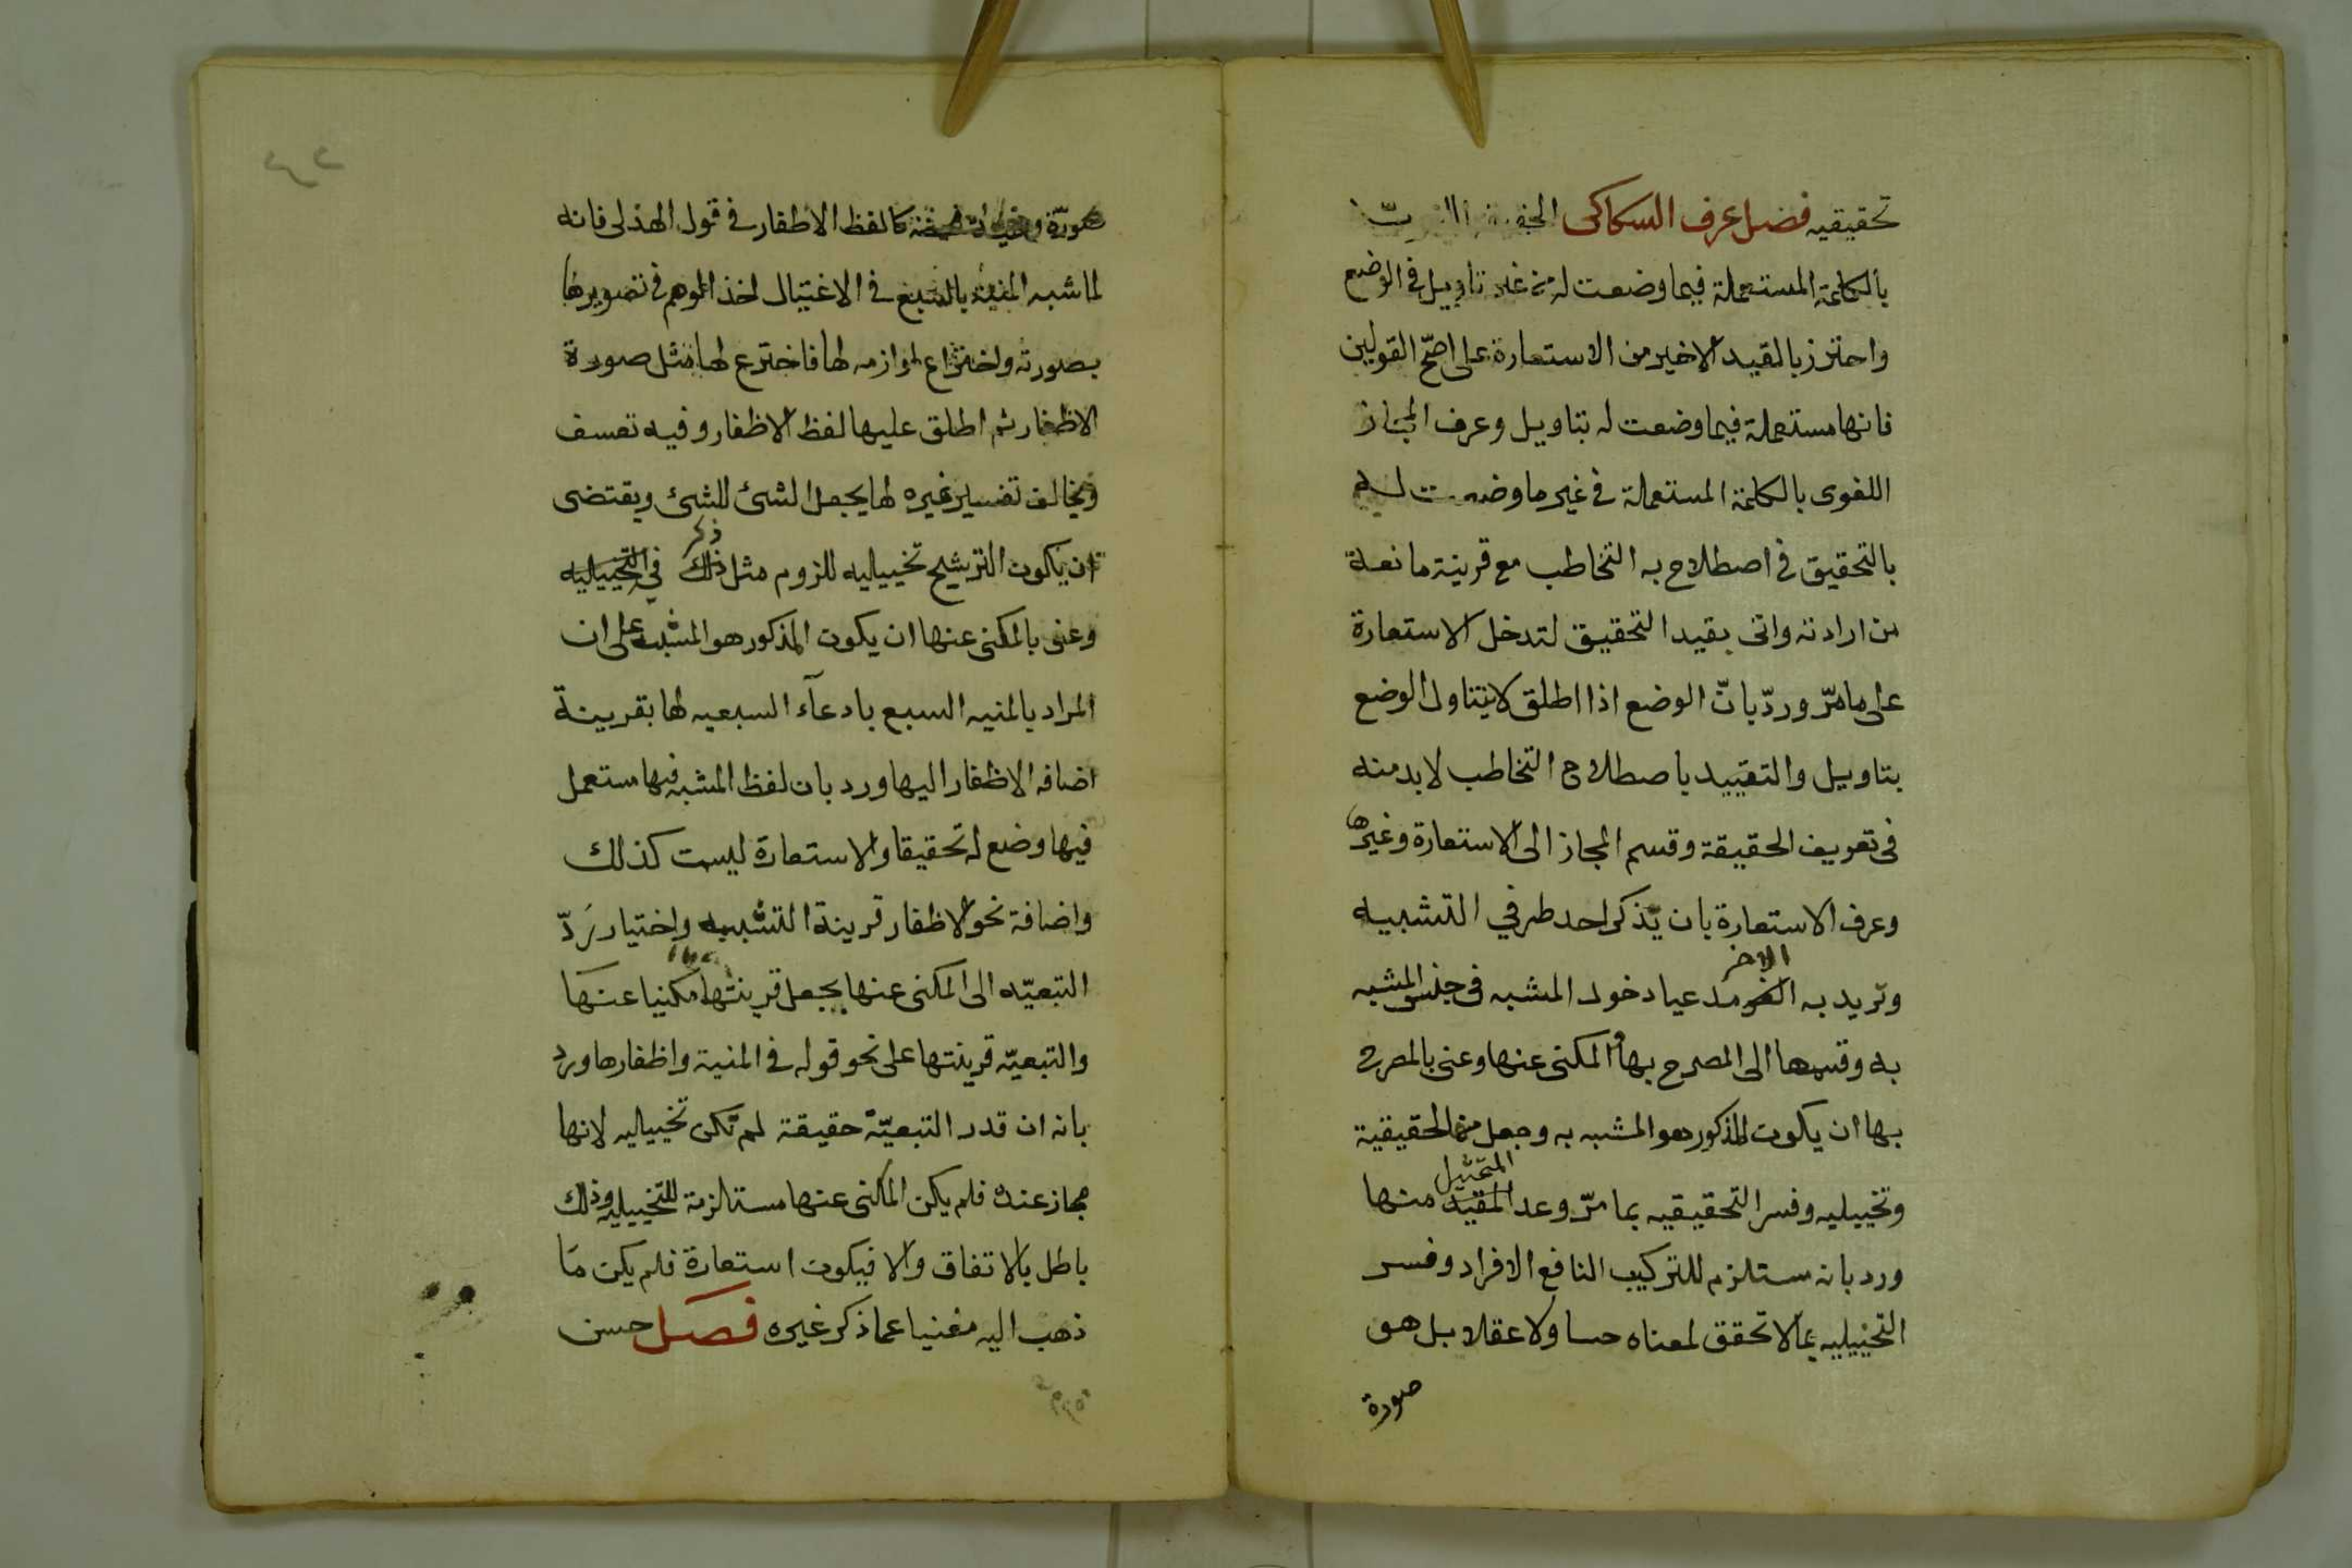 تحقيقيه فصل عرف السكاكى
بالكلمة المستعملة فيما وضعت له من غير تاويل فى الوضع
واحترز بالقيد الاخير من الاستعارة على اصّح القولين
فانها مستعملة فيما وضعت له بتاويل وعرف المجاز
اللغوى بالكلمة المستعملة فى غير ما وضعت له
بالتحقيق فى اصطلاح به التخاطب مع قرينة مانعة
من ارادته واتى بقيد التحقيق لتدخل الاستعارة
على ما مرّ وردّ بانّ الوضع اذا اطلق لا يتناول الوضع
بتاويل والتقييد باصطلاح التخاطب لا بد منه
فى تعريف الحقيقة وقسم المجاز الى الاستعارة وغيرها
وعرف الاستعارة بان يذكر احد طرفي التشبيه
وتريد به الاخر مدعيا دخول المشبه فى جنس المشبه
به وقسمها الى المصرح بها والمكنى عنها وعنى بالمصرح
بها ان يكون المذكور هو المشبه به وجعل منها الحقيقية
وتخييليه وفسر التحقيقيه بما مرّ وعد التمثيل منها
ورد بانه مستلزم للتركيب النافع الافراد وفسر
التخييليه بما لا تحقق لمعناه حسا ولا عقلا بل هو
صورة
صورة وهمية محضة كالفظ الاظفار فى قول الهذلى فانه
لما شبه المنية بالسبع فى الاغتيال اخذ الوهم فى تصويرها
بصورته واختراع لوازمه لها فاخترع لها مثل صورة
الاظفار ثم اطلق عليها لفظ الاظفار وفيه تعسف
ويخالف تفسير غيره لها بجعل الشئ للشئ ويقتضى
ان يكون الترشيح تخييليه للزوم مثل ذكر فى التخييليه
وعنى بالمكنى عنها ان يكون المذكور هو المشبه على ان
المراد بالمنيه السبع بادعآء السبعيه لها بقرينة
اضافه الاظفار اليها ورد بان لفظ المشبه فيها مستعمل
فيما وضع له تحقيقا والاستعارة ليست كذلك
واضافة نحو الاظفار قرينة التشبيه واختيار رَدّ
التبعيّه الى المكنى عنها بجعل قرينتها مكنيا عنها
والتبعيّه قرينتها على نحو قوله فى المنية واظفارها ورد
بانه ان قدر التبعيّة حقيقة لم تكن تخييليه لانها
مجاز عنده فلم يكن المكنى عنها مستلزمة للتخييليه وذلك
باطل بالاتفاق والا فيكون استعارة فلم يكن ما
ذهب اليه مغنيا عما ذكر غيره فصل حسن